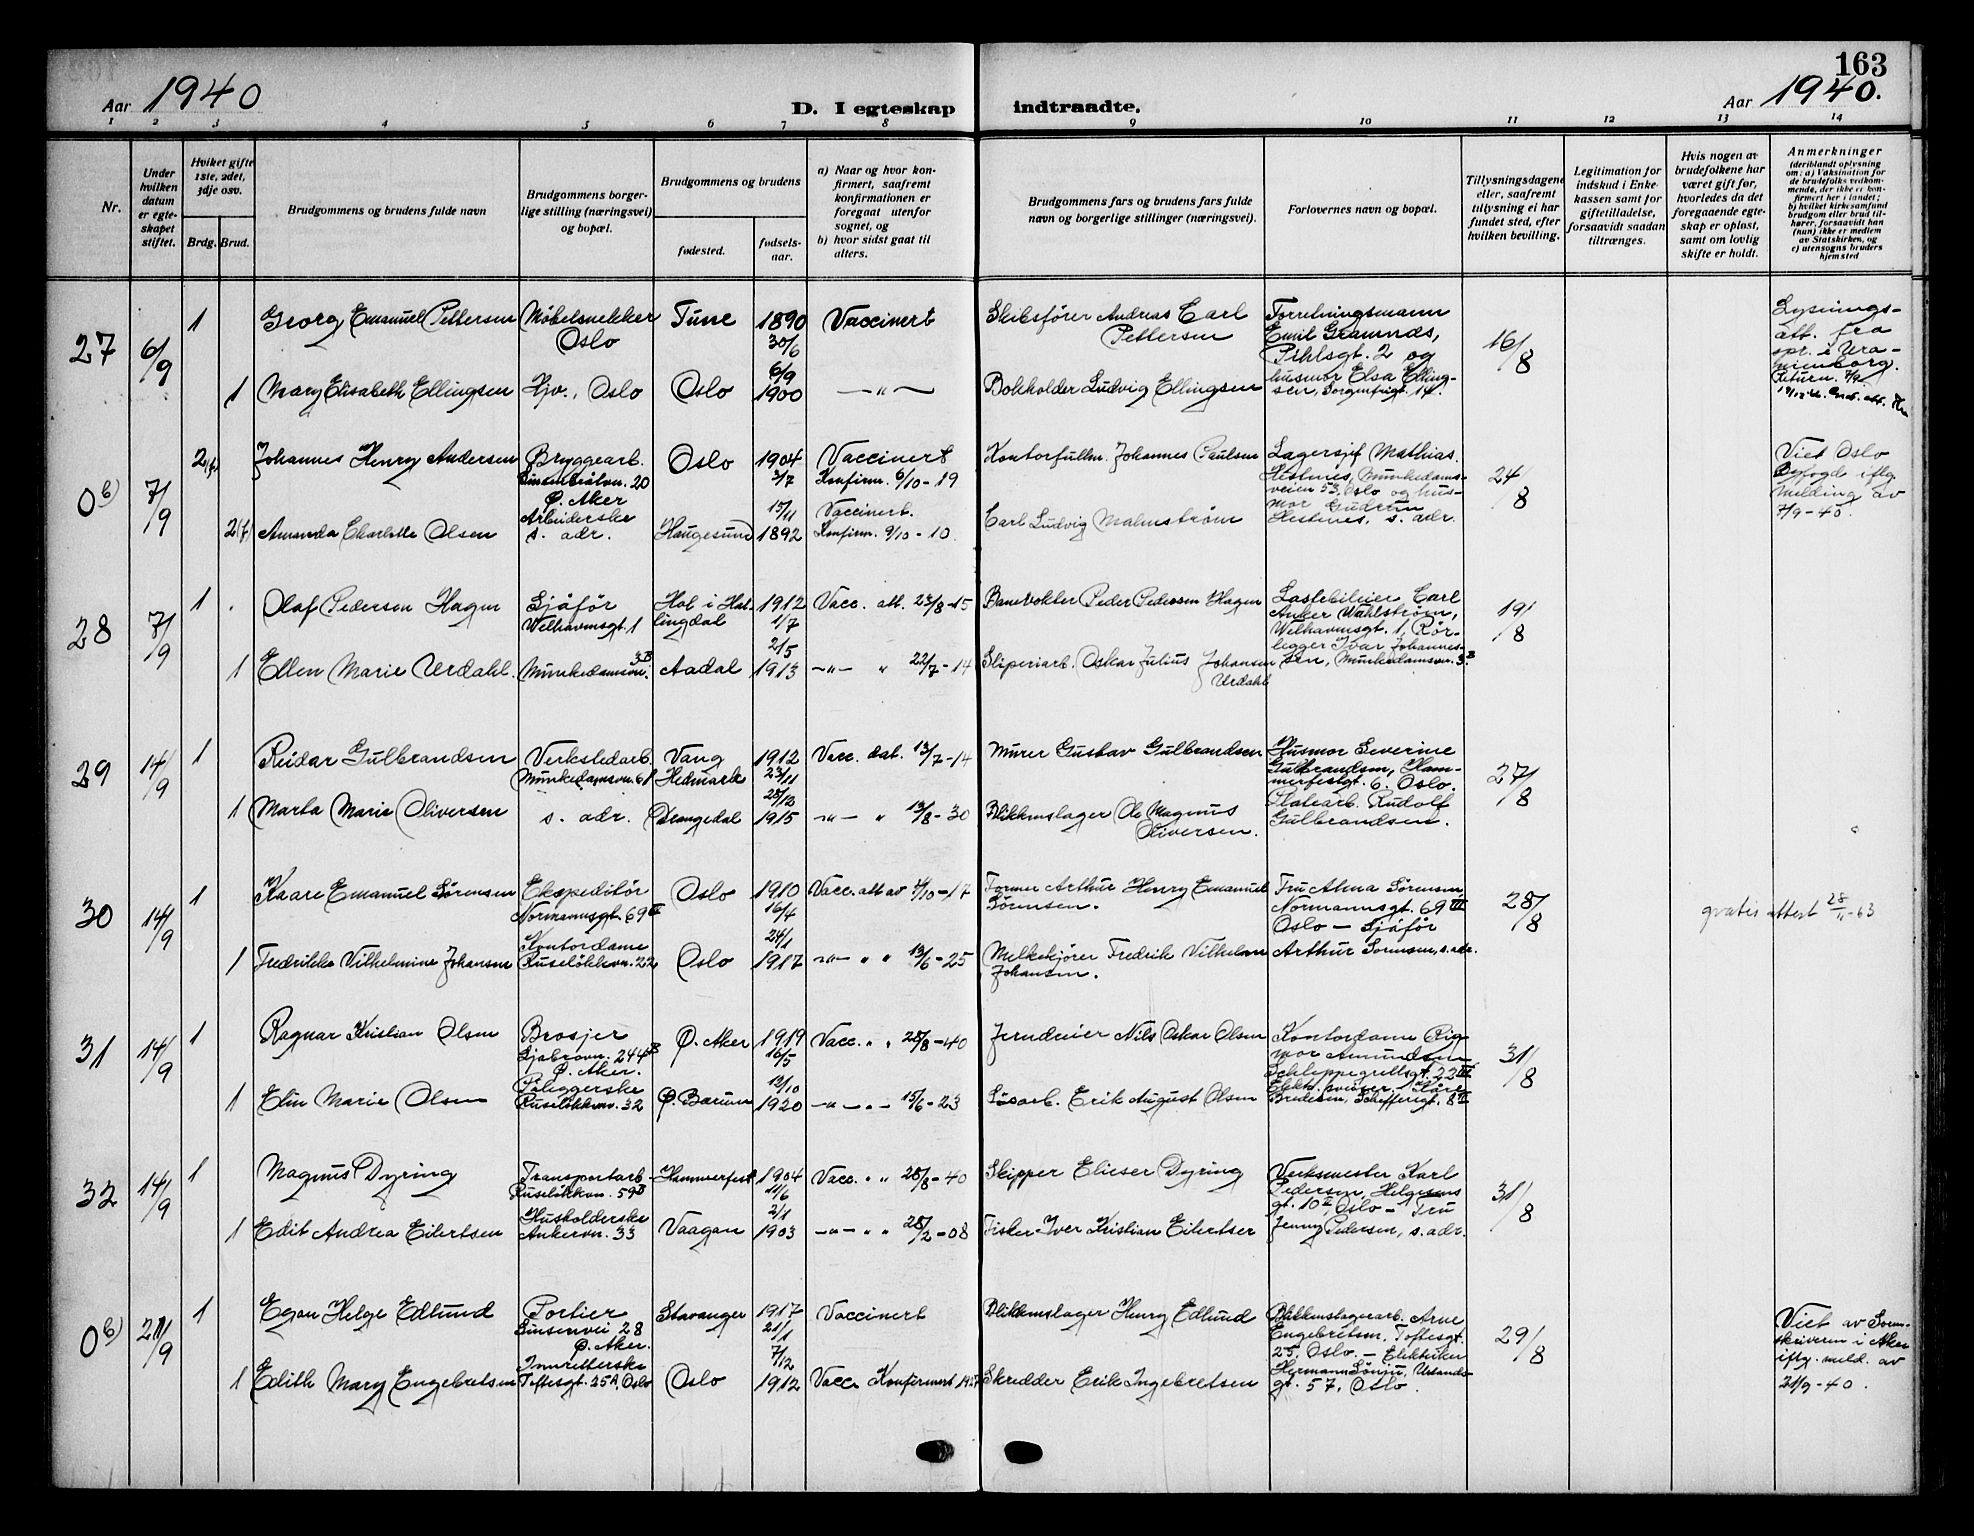 163
Aar 1940
D. I egteskap indtraadte.
Aar 1940.
1 2 3 4 5 6 7 8 9 10 11 12 13 14
Nr.
Under hvilken datum er egteskapet stiftet.
Hvilket gifte 1ste, 2det, 3dje osv.
Brdg. Brud.
Brudgommens og brudens fulde navn
Brudgommens borgerlige stilling (næringsvei) og bopæl.
Brudgommens og brudens
fødested.
fødselsaar.
a) Naar og hvor konfirmert, saafremt konfirmationen er foregaat utenfor sognet, og
b) hvor sidst gaat til alters.
Brudgommens fars og brudens fars fulde navn og borgerlige stillinger (næringsvei).
Forlovernes navn og bopæl.
Tillysningsdagene eller, saafremt tillysning ei har fundet sted, efter hvilken bevilling.
Legitimation for indskud i Enkekassen samt for giftetilladelse, forsaavidt saadan tiltrænges.
Hvis nogen av brudefolkene har været gift før, hvorledes da det foregaaende egteskap er opløst, samt om lovlig skifte er holdt.
Anmerkninger
(deriblandt oplysning om: a) Vaksination for de brudefolks vedkommende, der ikke er konfirmert her i landet;
b) hvilket kirkesamfund brudgom eller brud tilhører, forsaavidt han (hun) ikke er medlem av Statskirken, og
c) utensogns bruders hjemsted
27 6/9
1 Georg Emanuel Pettersen Møbelsnekker Oslo Tune 1890 30/6 Vaccinert
Skibsfører Andreas Carl Pettersen
Forretningsmann Emil Gramnæs, Pihlsgt. 2 og husmor Elsa Ellingsen, Sorgenfrigt. 14.
16/8
Lysningsatt. fra spr. i Uranienborg. Return. 7/9
1 Mary Elisabeth Ellingsen Hjv., Oslo Oslo 6/9 1900 — " —
Bokholder Ludvig Ellingsen
0 b) 7/9
2 Johannes Henry Andersen Bryggearb. 20 Ø. Aker Oslo 1904 3/7 Vaccinert Konfirm. 6/10-19
Kontorfullm. Johannes Paulsen
Lagersjef Mathias Hestnes, Munkedamsveien 53, Oslo og husmor Gudrun Hestnes, s. adr.
24/8
Viet Oslo Byfogd iflg melding av 7/9-40.
2(f) Amanda Charlotte Olsen Arbeiderske s. adr. Haugesund 15/11 1892 Vaccinert. Konfirm. 9/10-10.
Carl Ludvig Malmstrøm
28 7/9
1 Olaf Pedersen Hagen Sjåfør Welhavensgt. 1 Hol i Hallingdal 1912 1/7 Vacc. att. 23/8-15
Banevokter Peder Pedersen Hagen
Lastebileier Carl Anker Wahlstrøm, Welhavensgt. 1, Rørlegger Ivar Johannessen, Munkedamsvn. 3B
19/8
1 Ellen Marie Urdahl. Munkedamsvn. 3B Aadal 2/5 1913 — " — " 22/7-14
Sliperiarb. Oskar Julius Johansen Urdahl
29 14/9
1 Reidar Gulbrandsen Verkstedarb. Munkedamsvn. 61 Vang Hedmark 1912 23/11 Vacc. dat. 13/7-14
Murer Gustav Gulbrandsen
Husmor Severine Gulbrandsen, Hammerfestgt. 6. Oslo. Platearb. Rudolf Gulbrandsen.
27/8
1 Marta Marie Oliversen s. adr. Drangedal 28/12 1915 — " — " 13/8-30
Blikkenslager Ole Magnus Oliversen.
30 14/9
1 Kaare Emanuel Sørensen Ekspeditør Normannsgt. 69 III Oslo 1910 16/4 Vacc. att av 4/10-17
Former Arthur Henry Emanuel Sørensen.
Fru Alma Sørensen Normannsgt. 69 III Oslo — Sjåfør Arthur Sørensen, s. adr.
28/8
gratis attest 28/11-63
1 Fredrikke Vilhelmine Johansen Kontordame Ruseløkkvn. 22 Oslo 24/1 1917 — " — " " 13/6-25
Melkekjører Fredrik Vilhelm Johansen.
31 14/9
1 Ragnar Kristian Olsen Brosjer Ljabrovn. 244B Ø. Aker. Ø. Aker 1919 16/5 Vacc. " " 28/8-40
Jerndreier Nils Oskar Olsen
Kontordame Rigmor Amundsen Schleppegrellsgt. 22 III Elekt. sveiser Kåre Bredesen, Schifferigt. 8 II
31/8
1 Elin Marie Olsen Påleggerske Ruseløkkvn. 32 Ø. Bærum 12/10 1920 — " — " — 15/6-23
Løsarb. Erik August Olsen
32 14/9
1 Magnus Dyring Transportarb. Ruseløkkvn. 59B Hammerfest 1904 11/6 Vacc. " " 28/8-40
Skipper Elieser Dyring
Verksmester Karl Pedersen, Helgesens gt. 10 II, Oslo — Fru Jenny Pedersen, s. adr.
31/8
1 Edit Andrea Eilertsen Husholderske Ankervn. 33 Vaagan 2/1 1903 — " — " " 28/2-08
Fisker Iver Kristian Eilertsen
0 b) 21/9
1 Egon Helge Edlund Portier Sinsenvei 28 Ø. Aker. Stavanger 1917 21/1 Vaccinert
Blikkenslager Henry Edlund
Blikkenslagerarb. Arne Engebretsen, Toftesgt. 25, Oslo. — Elektriker Hermann Sönju, gt. 57, Oslo.
29/8
Viet av Sorenskriveren i Aker iflg. meld. av 21/9-40.
1 Edith Mary Engebretsen Innretterske Toftesgt. 25A, Oslo Oslo 7/12 1912 Vacc. Konfirmert 1927
Skredder Erik Ingebretsen